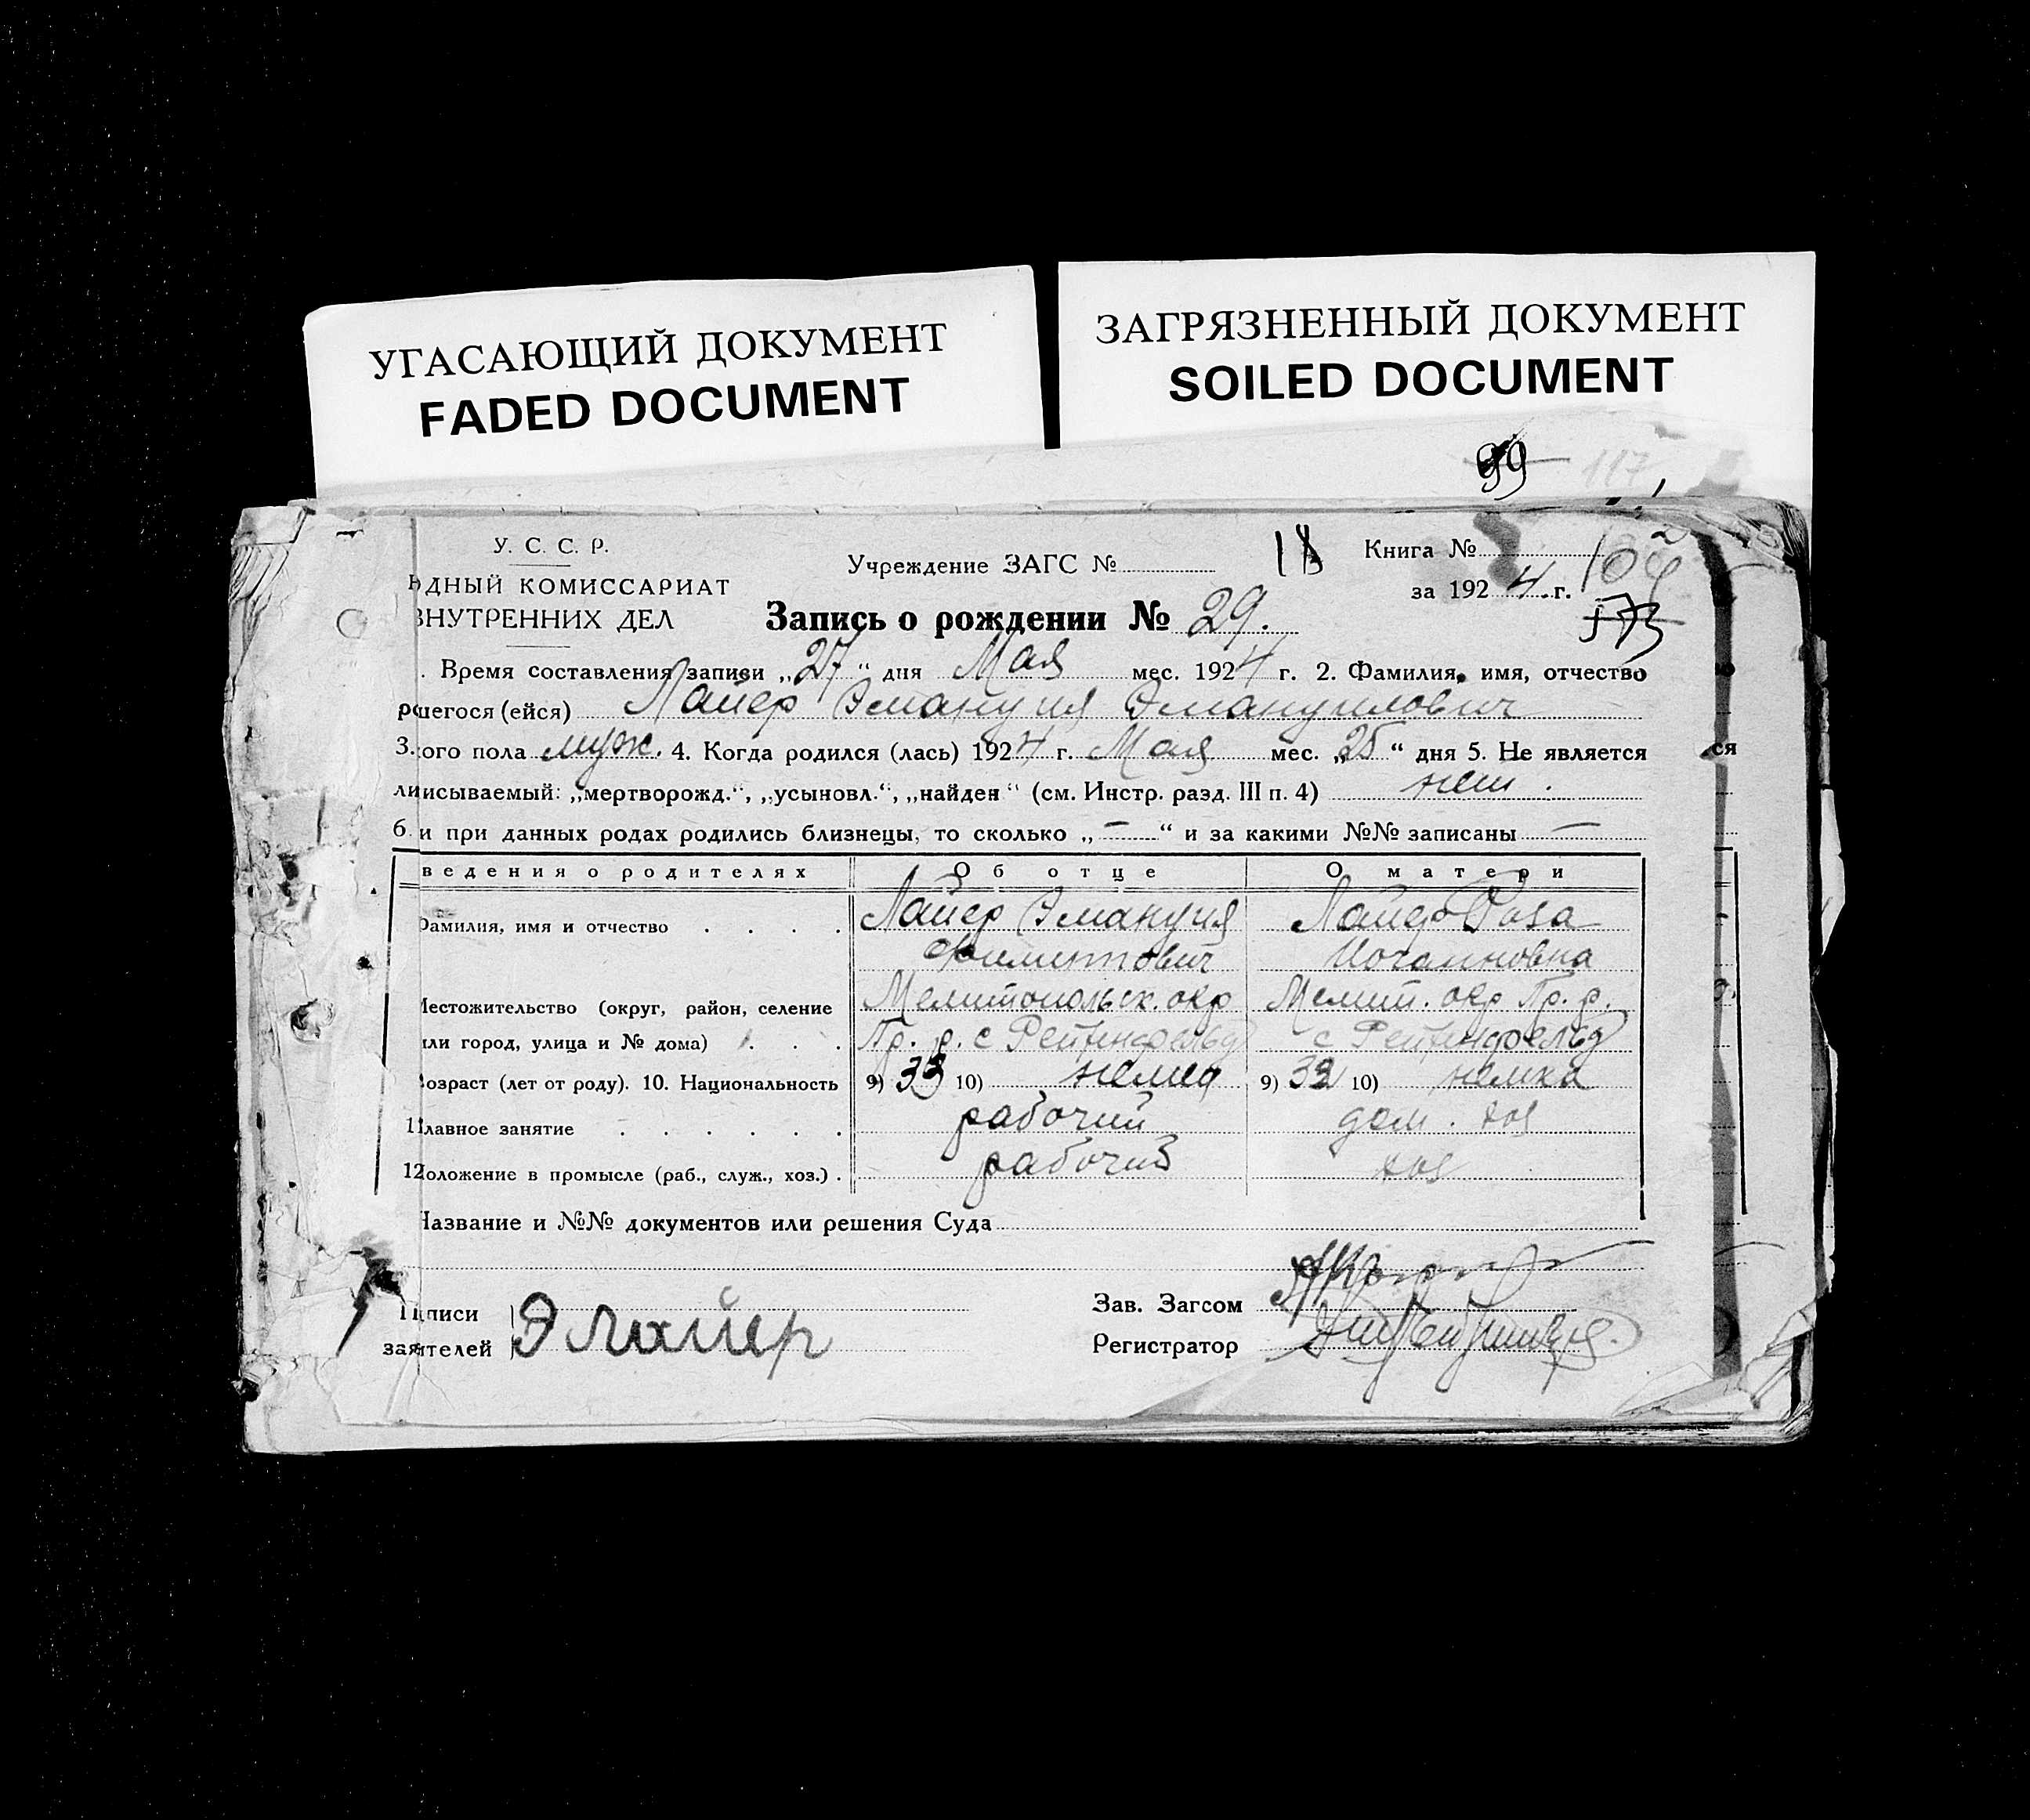 УГАСАЮЩИЙ ДОКУМЕНТ
FADED DOCUMENT
ЗАГРЯЗНЕННЫЙ ДОКУМЕНТ
SOILED DOCUMENT
99 117
У. С. С. Р.
ОДНЫЙ КОМИССАРИАТ
ВНУТРЕННИХ ДЕЛ
Учреждение ЗАГС № 18
Книга №
за 1924 г.
573
Запись о рождении № 29.
Время составления записи „27“ дня Мая мес. 1924 г. 2. Фамилия, имя, отчество
шегося (ейся) Лайер Эмануил Эмануилович
3. ого пола муж. 4. Когда родился (лась) 1924 г. Мая мес. „25“ дня 5. Не является
ли исываемый: „мертворожд.“, „усыновл.“, „найден“ (см. Инстр. разд. III п. 4) нет.
6. и при данных родах родились близнецы, то сколько „—“ и за какими №№ записаны —
ведения о родителях Об отце О матери
Фамилия, имя и отчество . . . . Лайер Эмануил Лайер Роза
Иоганновна
Местожительство (округ, район, селение Мелитопольск. окр Мелит. окр Пр. р.
или город, улица и № дома) . . . Пр. р. с Рейхенфельд с Рейхенфельд
возраст (лет от роду). 10. Национальность 9) 33 10) немец 9) 32 10) немка
11 лавное занятие . . . . . . рабочий дом. хоз
12 оложение в промысле (раб., служ., хоз.) . рабочий хоз
Название и №№ документов или решения Суда
писи
заятелей Э Лайер
Зав. Загсом
Регистратор